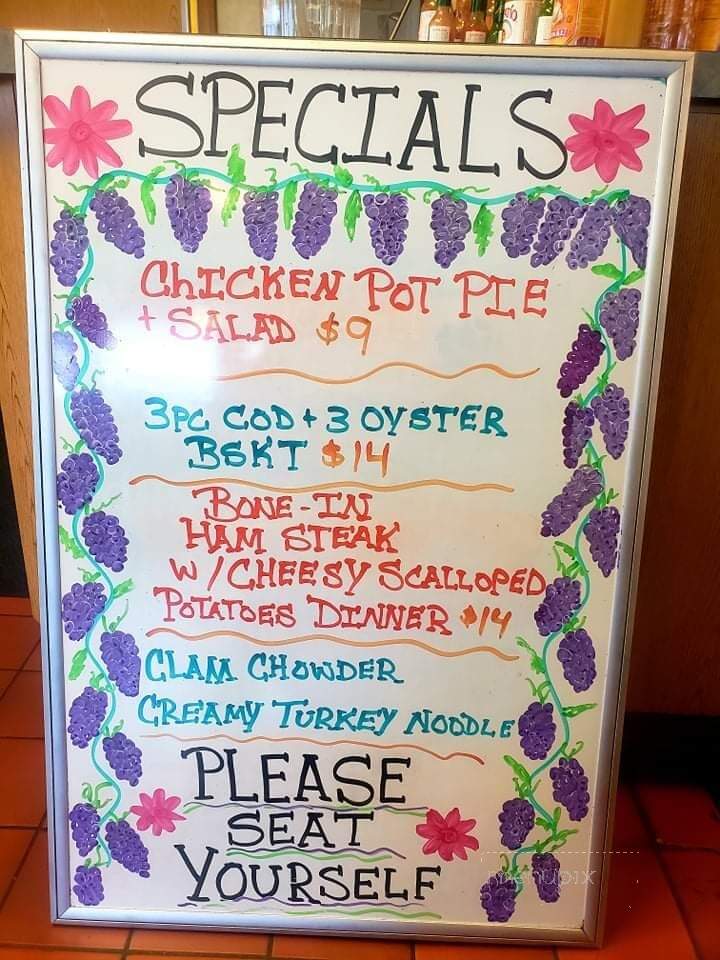 SPECIALS
CHICKEN POT PIE
+ SALAD $9
3PC COD + 3 OYSTER
BSKT $14
BONE-IN
HAM STEAK
W/CHEESY SCALLOPED
POTATOES DINNER $14
CLAM CHOWDER
CREAMY TURKEY NOODLE
PLEASE
SEAT
YOURSELF
menupix